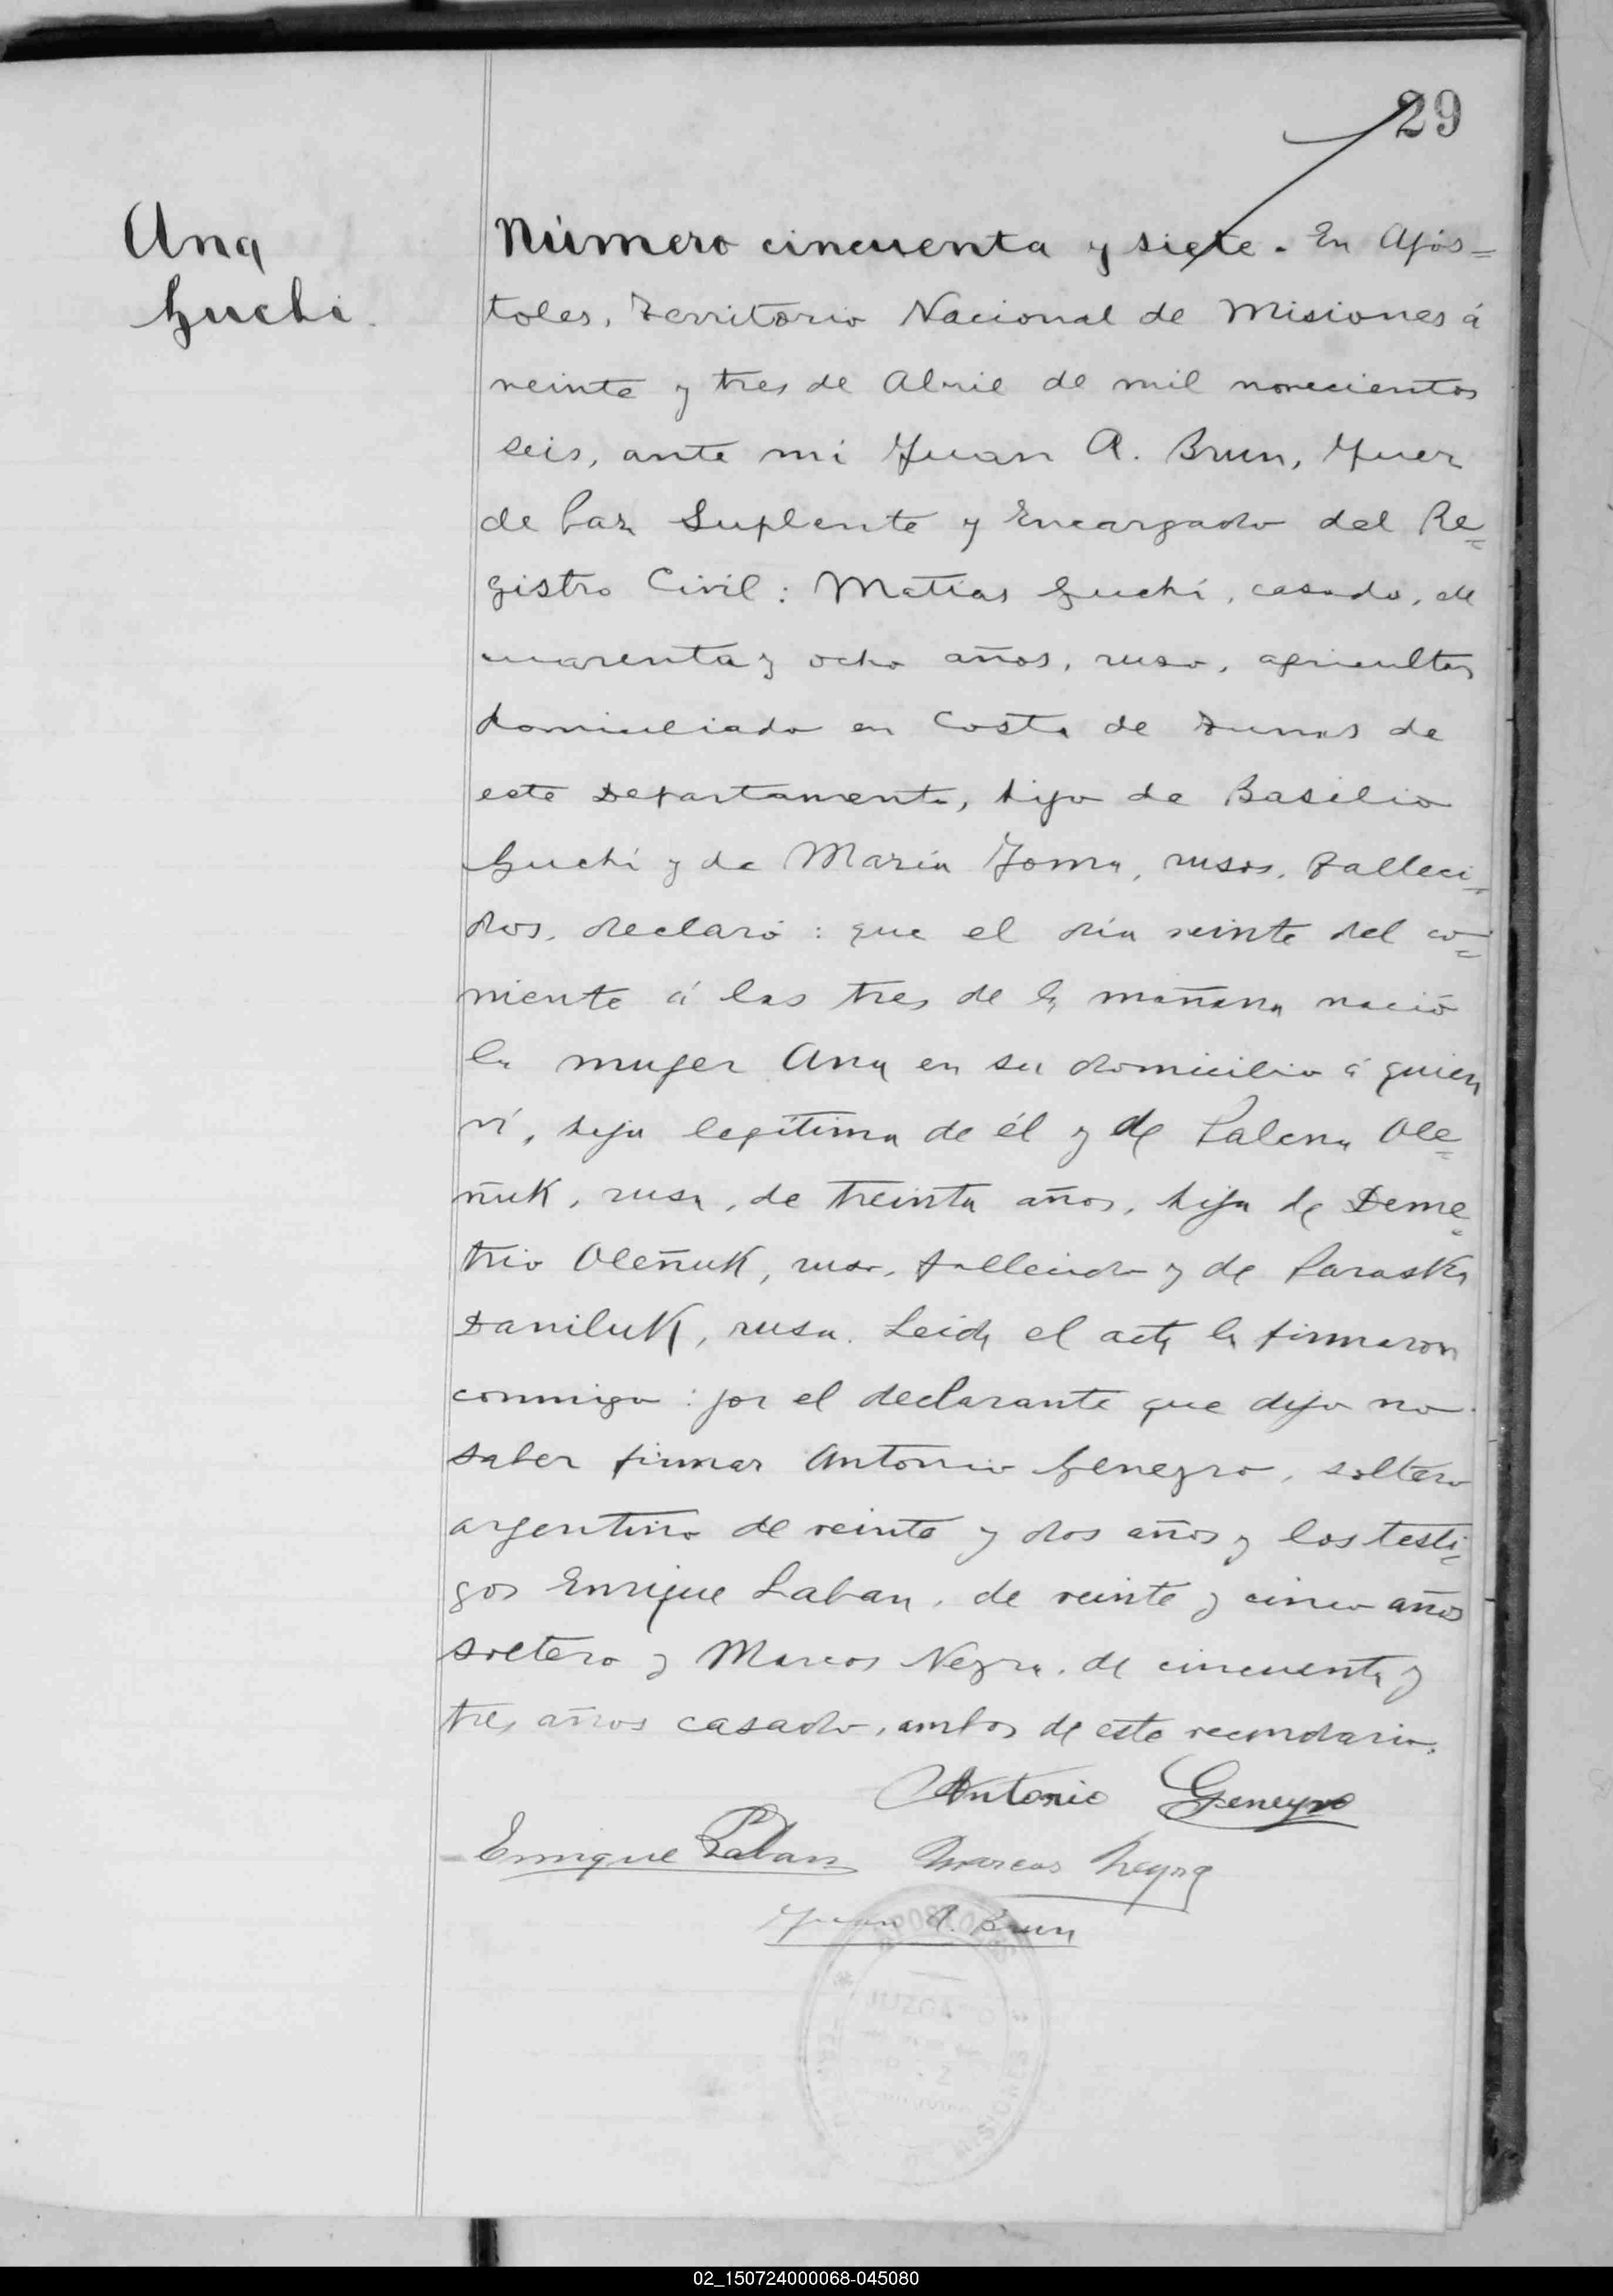 29
Ana
Guchi.
Número cincuenta y siete. En Após=
toles, Territorio Nacional de Misiones á
veinte y tres de Abril de mil novecientos
seis, ante mi Juan A. Brun, Juez
de Paz Suplente y Encargado del Re=
gistro Civil: Matias Guchi, casado, de
cuarenta y ocho años, ruso, agricultor
domiciliado en Costa de Tunas de
este Departamento, hijo de Basilio
Guchi y de María Joma, rusos, falleci=
dos, declaró: que el día veinte del co=
rriente á las tres de la mañana nació
la muger Ana en su domicilio á quien
ví, hija legítima de él y de Palena Ole=
ñuk, rusa, de treinta años, hija de Deme=
trio Oleñuk, ruso, fallecido y de Paraska
Daniluk, rusa. Leida el acta la firmaron
conmigo: por el declarante que dijo no
saber firmar Antonio Geneyro, soltero
argentino de veinte y dos años y los testi=
gos Enrique Laban, de veinte y cinco años
soltero y Marcos Neyra, de cincuenta y
tres años casado, ambos de este vecindario.
Antonio Geneyro
Enrique Laban Marcos Neyra
Juan A. Brun
MISIONES
02_150724000068-045080